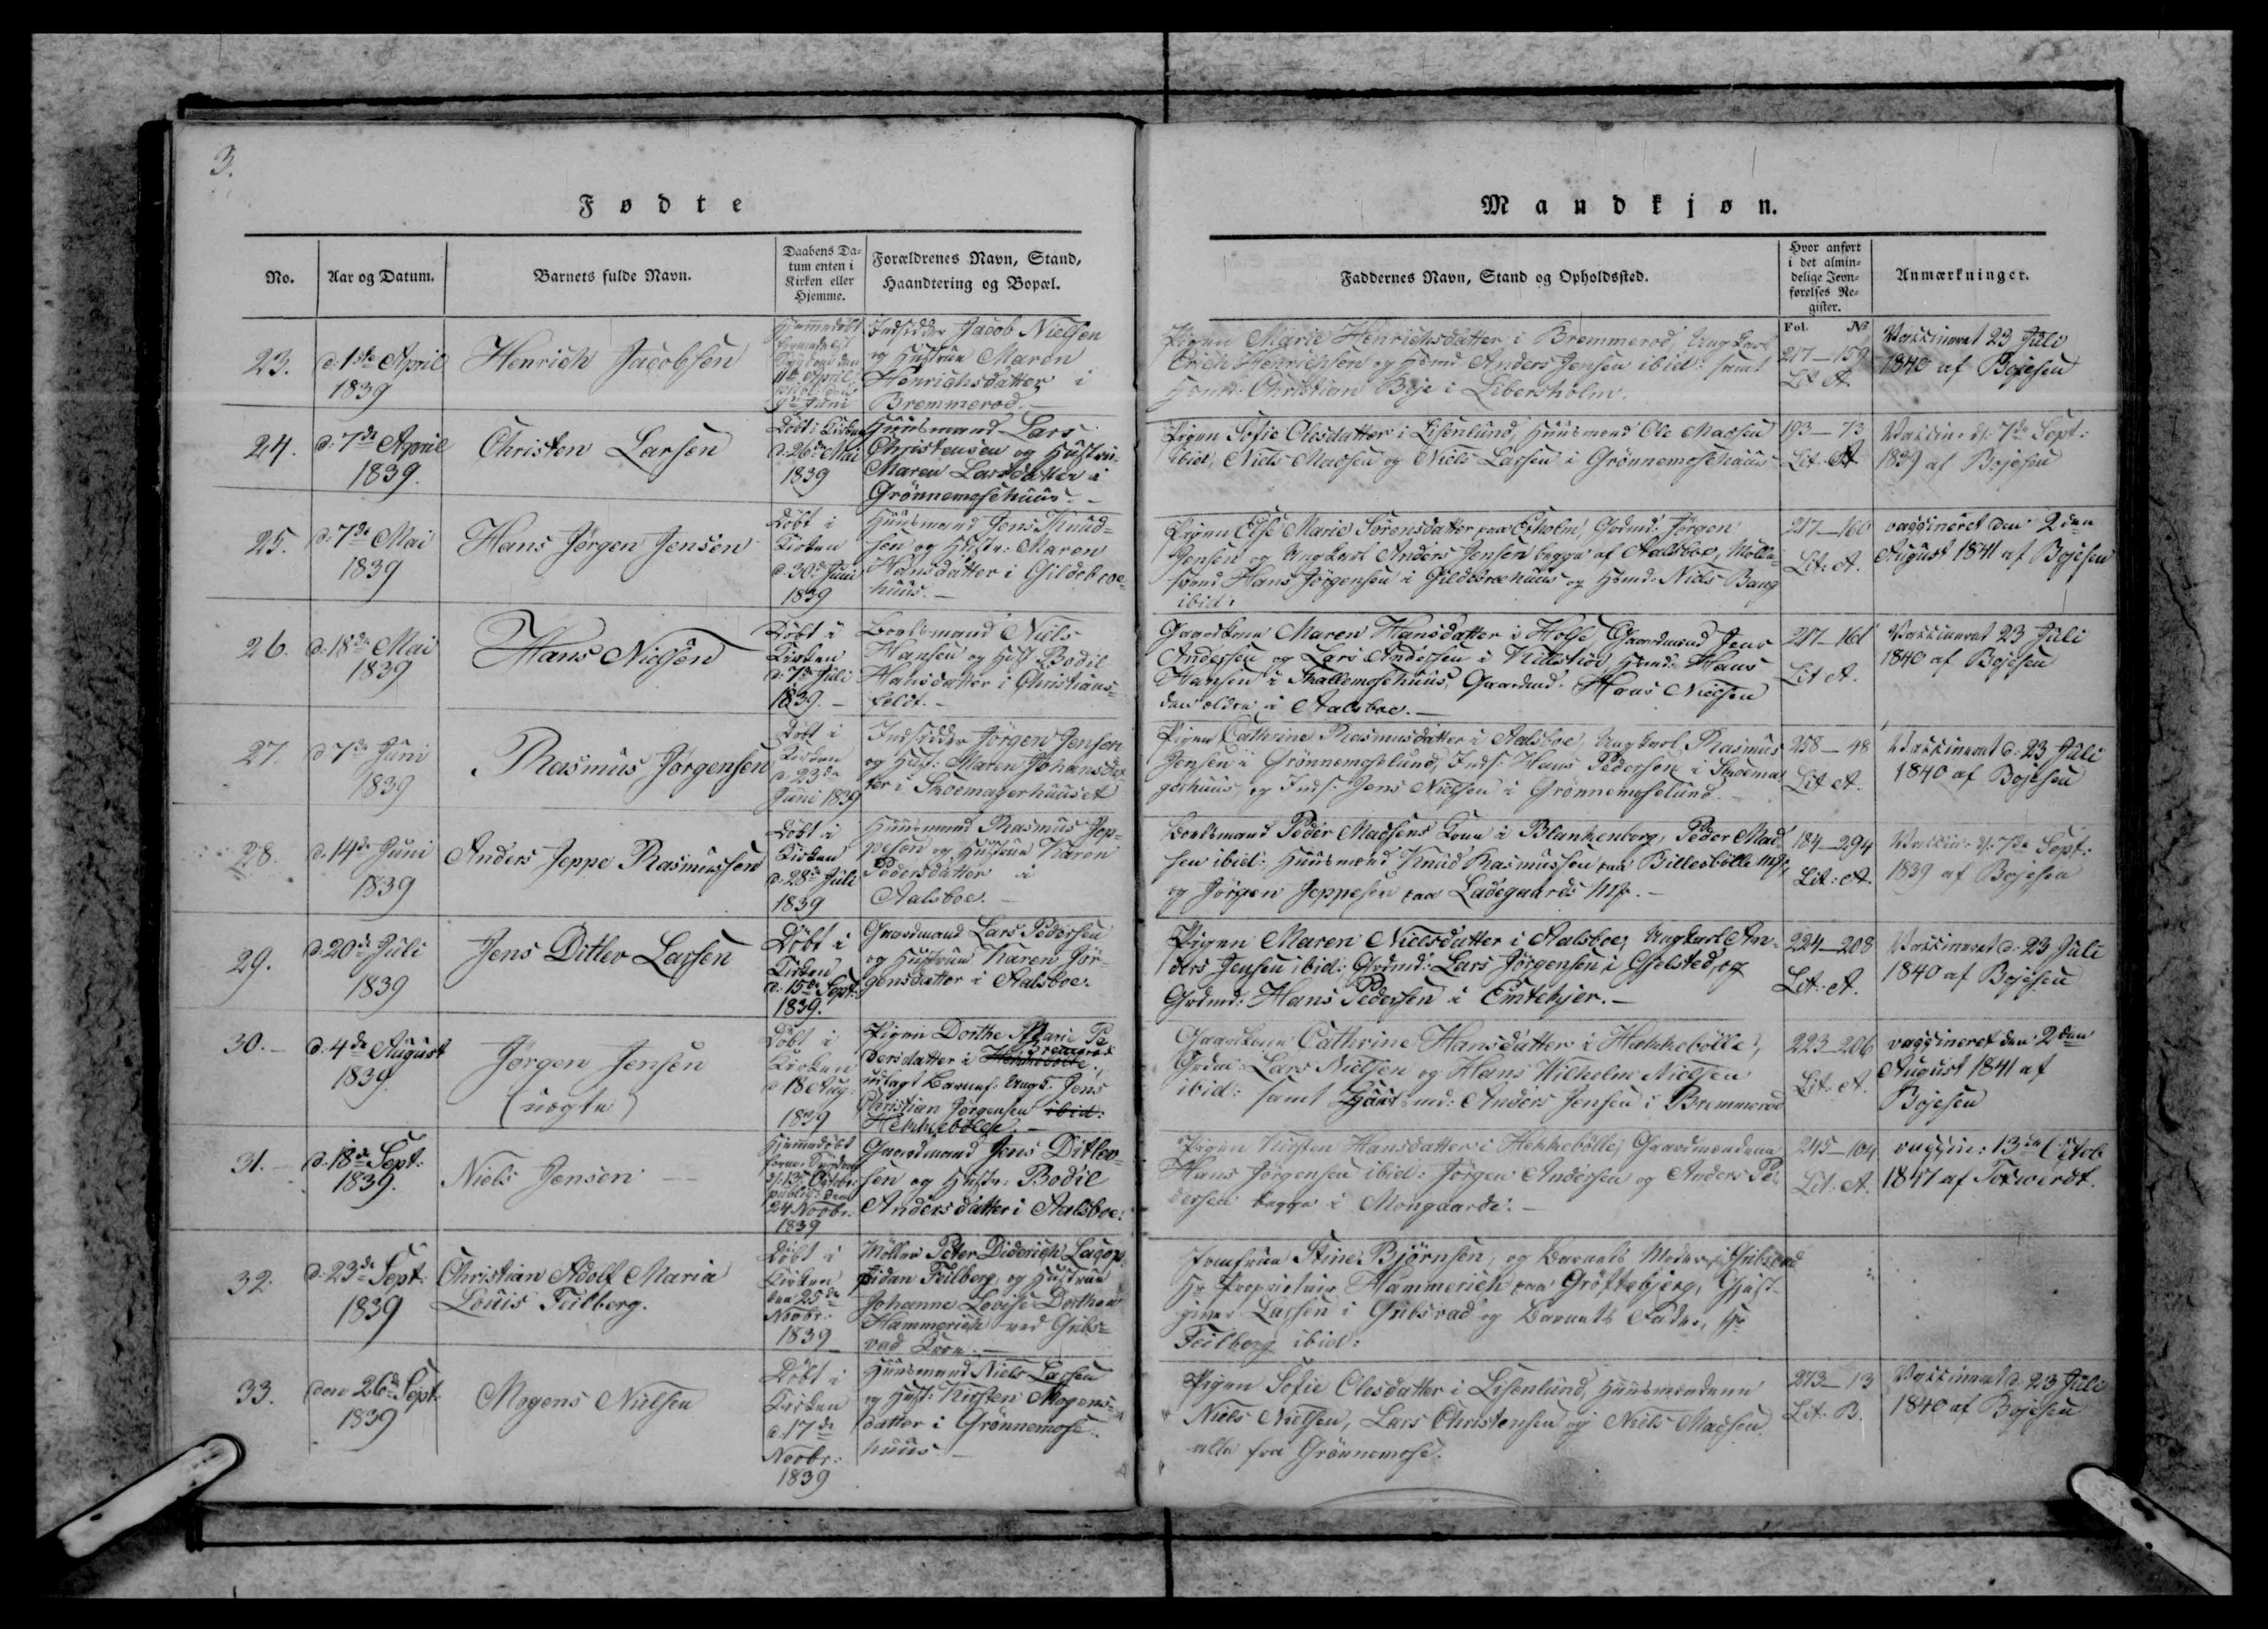 3.
Fødte
Mandkjøn.
No.
Aar og Datum.
Barnets fulde Navn.
Daabens Da-
tum enten i
Kirken eller
Hjemme.
Forældrenes Navn, Stand,
Haandtering og Bopæl.
Faddernes Navn, Stand og Opholdssted.
Hvor anført
i det almin-
delige Jevn-
førelses Re-
gister.
Anmærkninger.
Fol. No
23.
d: 1ste April
1839
Henrich Jacobsen
Hjemmedøbt
11te April
9de Juni
Indsidder Jacob Nielsen
og Hustrue Maren
Henrichsdatter i
Bremmerod.
Pigen Marie Henrichsdatter i Bremmerod, Ungkarl
Erich Henrichsen og Hmd Anders Jensen ibid: samt
Christian Boje i Libersholm.
217-159
Lit A.
Vaccineret 23 Juli
1840 af Bojesen
24.
d: 7de April
1839.
Christen Larsen
Døbt i Kirken
d: 26de Mai
1839
Huusmand Lars
Christensen og Hustru
Maren Larsdatter i
Grønnemosehuus. -
Pigen Sofie Olesdatter i Lisenlund, Huusmænd Ole Madsen
ibid, Niels Madsen og Niels Larsen i Grønnemosehuus
193-73
Lit. A
Vaccin. d. 7de Sept:
1839 af Bojesen
25.
d: 7de Mai
1839
Hans Jørgen Jensen
Døbt i
Kirken
d: 30te Juni
1839
Huusmand Jens Knud-
sen og Hustr: Maren
Hansdatter i Gildebroe-
huus. -
Pigen Else Marie Sørensdatter paa Esholm, Grdmd: Jørgen
Jensen og Ungkarl Anders Jensen begge af Aalsboe, Mølle-
svend Hans Jørgensen i Gildebroehuus og Hsmd: Niels Bang
ibid:
217-160
Lit: A.
vaccineret den 2den
August 1841 af Bojesen
26.
d: 18de Mai
1839
Hans Nielsen
Døbt i
Kirken
d: 7de Juli
1839. -
Boelsmand Niels
Hansen og Hust Bodil
Hansdatter i Christians-
feldt. -
Gaardkone Maren Hansdatter i Holse, Gaardmænd Jens
Andersen og Lars Andersen i Killerslev, Hsmd: Hans
Hansen i Skallemosehuus, Gaardmd. Hans Nielsen
den ældre i Aalsboe. -
217-161
Lit A.
Vaccineret 23 Juli
1840 af Bojesen
27.
d 7de Juni
1839
Rasmus Jørgensen
Døbt i
Kirken
d: 23de
Juni 1839
Indsidder Jørgen Jensen
og Hust: Maren Johansdat-
ter i Skoemagerhuuset
Pigen Cathrine Rasmusdatter i Aalsboe, Ungkarl Rasmus
Jensen i Grønnemoselund, Inds: Hans Pedersen i Skoema-
gerhuus, og Inds: Jens Nielsen i Grønnemoselund. -
258-48
Lit A.
Vaccineret d: 23 Juli
1840 af Bojesen
28.
d: 14de Juni
1839
Anders Jeppe Rasmussen
Døbt i
Kirken
d: 28de Juli
1839
Huusmand Rasmus Jep-
pesen og Hustrue Karen
Pedersdatter i
Aalsboe. -
Boelsmand Peder Madsens Kone i Blankenborg, Peder Mad-
sen ibid: Huusmænd Knud Rasmussen paa Billesbølle Mk,
og Jørgen Jeppesen paa Ladegaards Mk. -
184-294
Lit: A.
Vaccin: d. 7de Sept:
1839 af Bojesen
29.
d: 20de Juli
1839
Jens Ditlev Larsen
Døbt i
Kirken
d: 15de Sept:
1839.
Gaardmand Lars Pedersen
og Hustrue Karen Jør-
gensdatter i Aalsboe.
Pigen Maren Nielsdatter i Aalsboe, Ungkarl An-
ders Jensen ibid: Grdmd: Lars Jørgensen i Gjelsted, og
Grdmd: Hans Pedersen i Emtekjer. -
224-208
Lit: A.
Vaccineret d: 23 Juli
1840 af Bojesen
30. -
d: 4de August
1839.
Jørgen Jensen
(uægte)
Døbt i
Kirken
d 18 Aug.
1839
Pigen Dorthe Marie Pe-
dersdatter i Bremerod
udlagt Barnef: Ungk: Jens
Christian Jørgensen ibid:
Hekkebølle. -
Gaardkone Cathrine Hansdatter i Hekkebølle,
Grdm: Lars Nielsen og Hans Wilhelm Nielsen
ibid: samt Huusmd: Anders Jensen i Bremmerod
223-206
Lit. A.
vaccineret den 2den
August 1841 af
Bojesen
31. -
d. 18de Sept:
1839.
Niels Jensen -
Hjemmedøbt
d: 13 Octobr.
public: den
24 Novbr.
1839
Gaardmand Jens Ditlev-
sen og Hustr: Bodil
Andersdatter i Aalsboe.
Pigen Kirsten Hansdatter i Hekkebølle, Gaardmændene
Hans Jørgensen ibid: Jørgen Andersen og Anders Pe-
dersen begge i Mongaarde. -
245-104
Lit: A.
vaccin: 13de Octob
1847 af
32.
d: 23de Sept:
1839
Christian Adolf Maria
Louis Feilberg.
Døbt i
Kirken
den 25de
Novbr:
1839
Møller Peter Diderich
Feilberg, og Hustrue
Johanne Lovise Dorthea
Hammerich ved Gribs-
vad Kroe. -
Jomfrue Stine Bjørnsen, og Barnets Moder i Gribsvad
Hr Proprietair Hammerich paa Grøftebjerg, Gjæst-
giver Larsen i Gribsvad og Barnets Fader, Hr
Feilberg ibid:
33.
den 26de Sept.
1839
Mogens Nielsen
Døbt i
Kirken
d: 17de
Novbr:
1839
Huusmand Niels Larsen
og Hust: Kirsten Mogens-
datter i Grønnemose
huus -
Pigen Sofie Olesdatter i Lisenlund, Huusmændene
Niels Nielsen, Lars Christensen og Niels Madsen
alle fra Grønnemose.
273-13
Lit. B.
Vaccineret d: 23 Juli
1840 af Bojesen